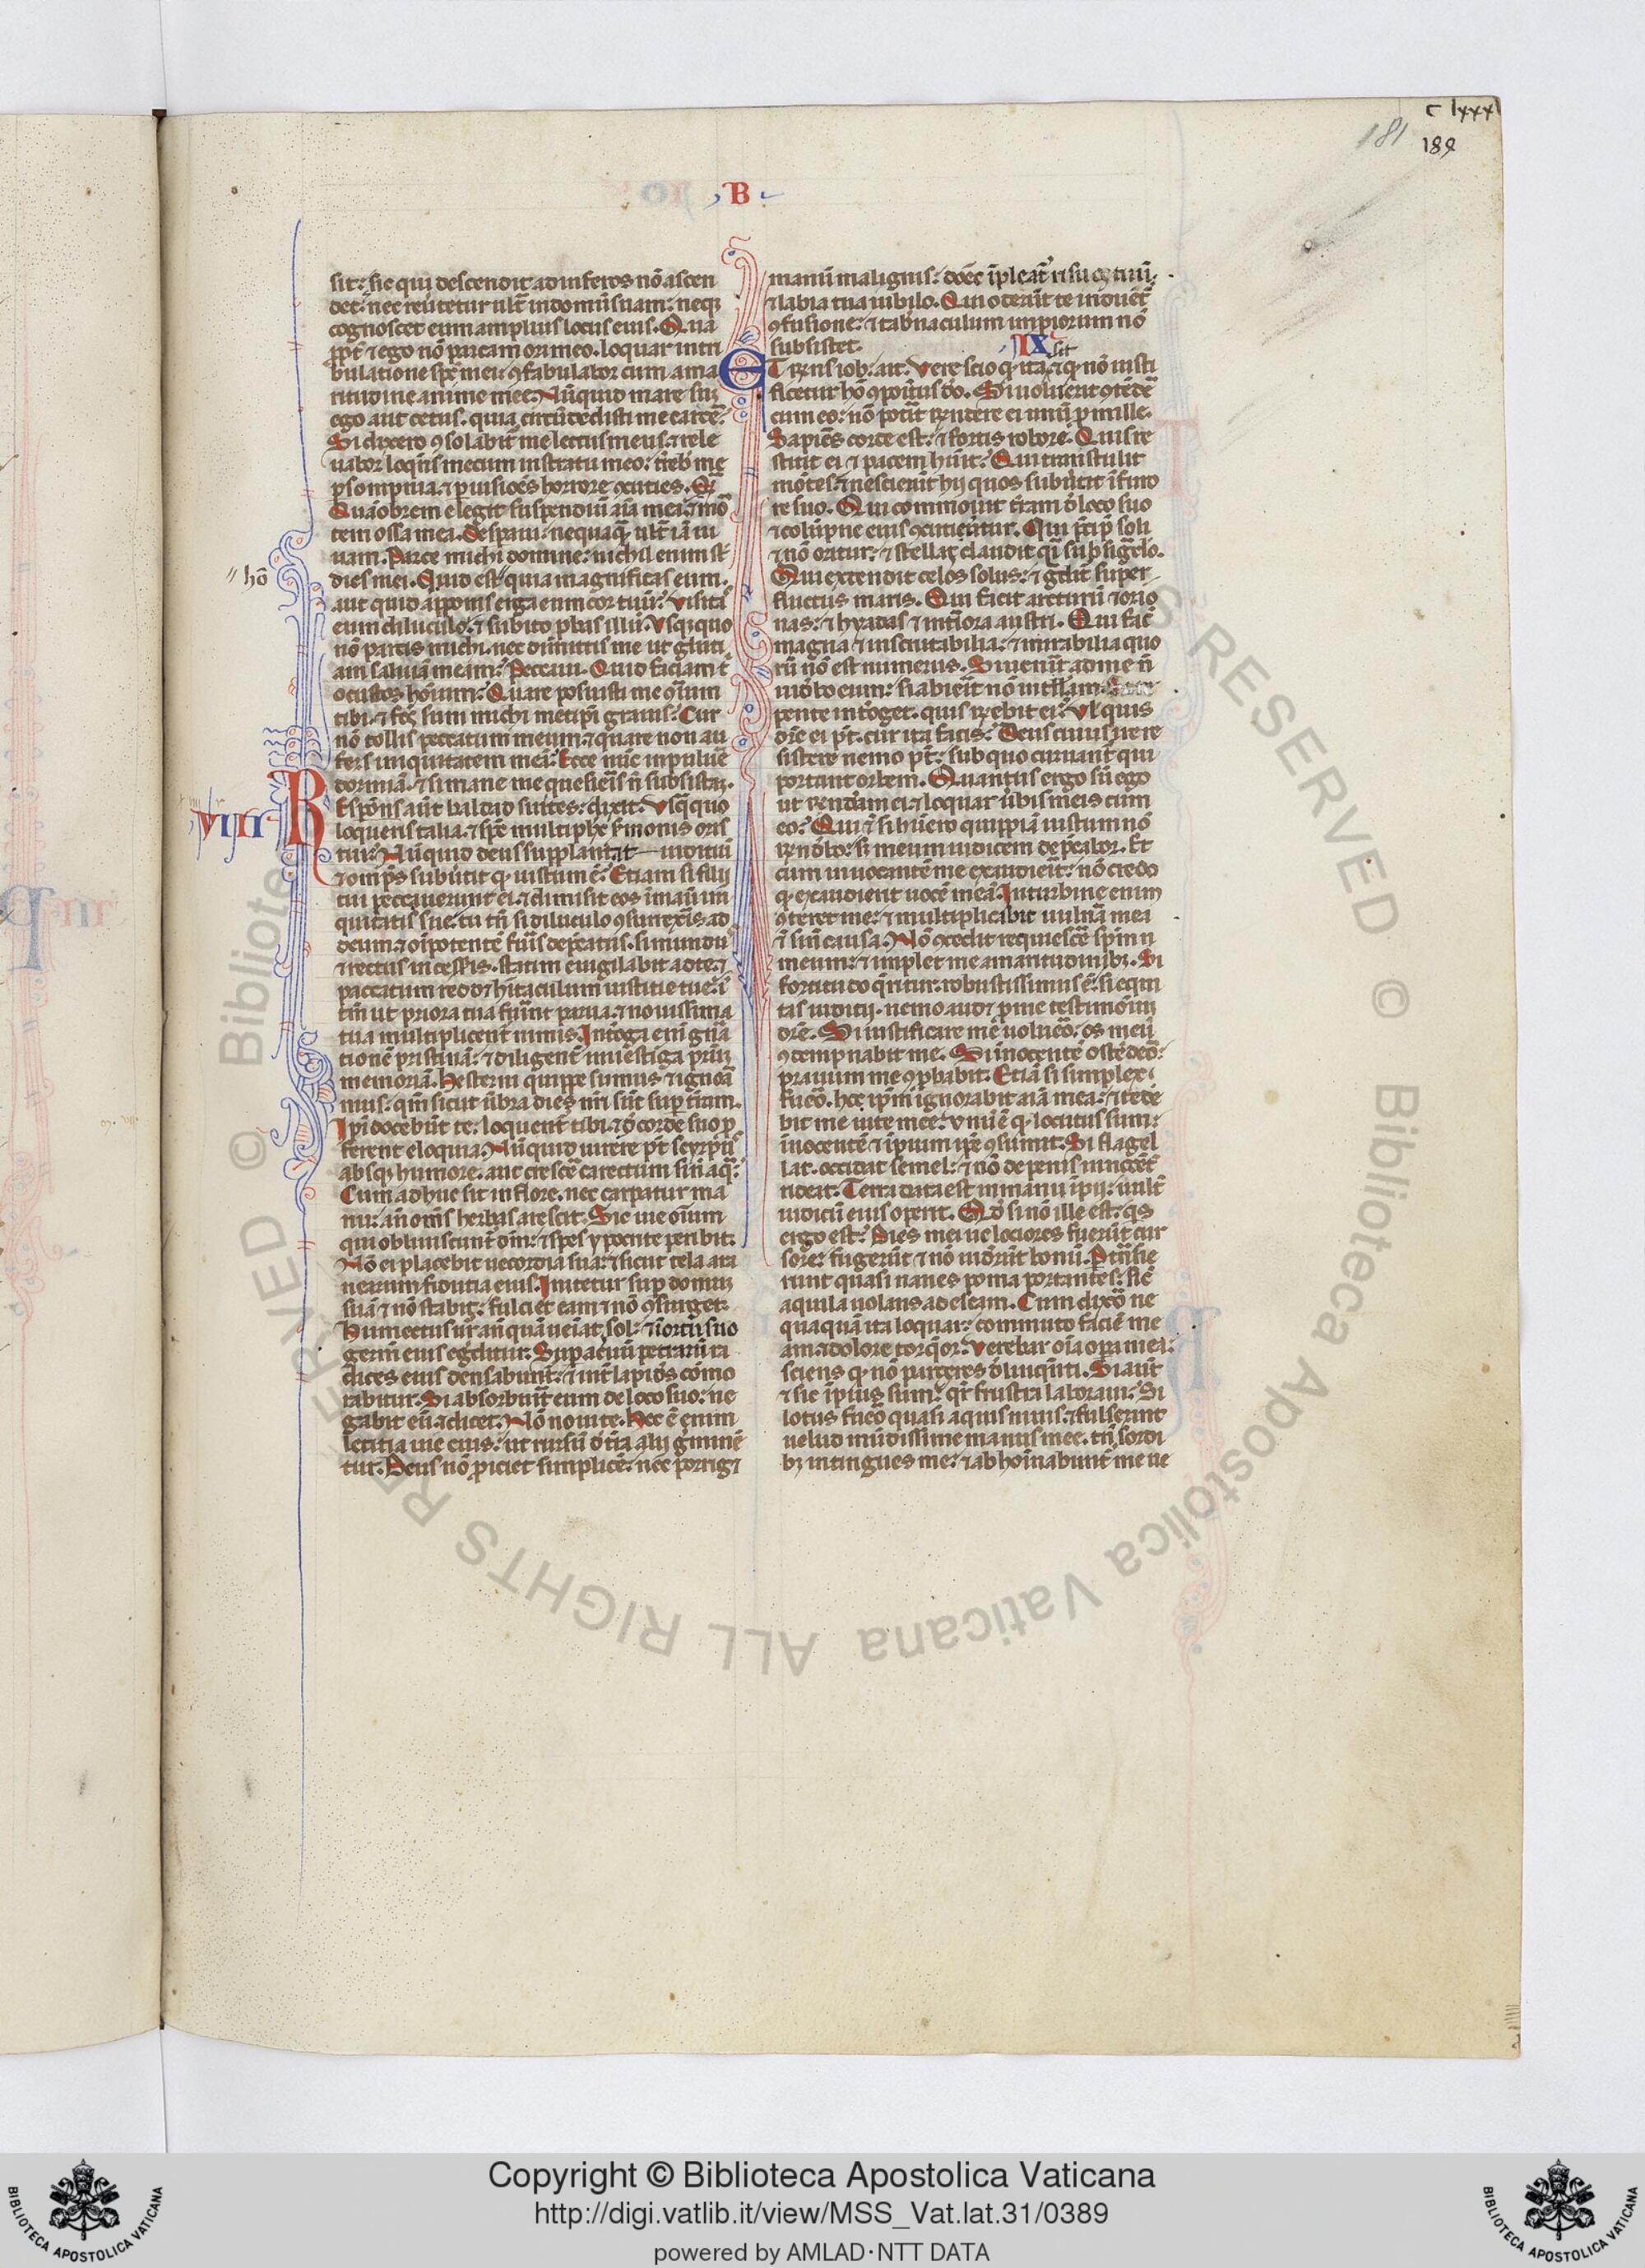 c lxxx
181
189
B
sit: sic qui descendit ad inferos nō ascen
det: nec reūtetur ult̄ in domū suam: neqꝫ
cognoscet eum amplius locus eius. Qua
ꝓpt̄ ⁊ ego nō parcam ori meo. loquar in tri
bulatione sp̄s mei: ꝯfabulabor cum ama
ritudine anime mee. Nūquid mare suꝫ
ego aut cetus. quia circūdedisti me carcē?
Si dixero ꝯsolabit̄ me lectus meus: ⁊ rele
uabor loquēs mecum in stratu meo: t̄reb̄ me
ꝑ sompnia: ⁊ ꝑ uisiōes horrore ꝯcuties.
Quāobrem elegit suspendiū aīa mea: ⁊ mō
tem ossa mea. Desꝑaui: nequaq̄ꝫ ult̄ iā ui
uam. Parce michi domine: nichil enim st̄
dies mei. Quid est quia magnificas eum.
hō
aut quid apponis erga eum cor tuū? Visitas
eum diluculo: ⁊ subito ꝓbas illū. Vsqꝫquo
nō parcis michi. nec dimittis me ut gluti
am saliuā meam? Peccaui. Quid faciam t̄
o custos hoīum? Quare posuisti me ꝯ̄ium
tibi. ⁊ fc̄s sum michi metip̄i grauis? Cur
nō tollis peccatum meum: ⁊ quare non au
fers iniquitatem meā? Ecce nūc in puluē
dormiā: ⁊ si mane me quesieris n̄ subsistaꝫ.
VIII
REspōns aut̄ baldad suites: dixit. Vsq̄quo
loqueris talia: ⁊ sp̄c multiplex s̄monis oris
tui? Nūquid deus supplantat iudiciū
⁊ omp̄s subūtit qd̄ iustum ē? Etiam si filij
tui peccauerunt ei: ⁊ dimisit eos ī manū ini
quitatis sue: tu tn̄ si diluculo ꝯsurrexis ad
deum: ⁊ oīpotentē fuīs dep̄catus. si mundus
⁊ rectus incessis. statim euigilabit ad te: ⁊
paccatum reddet hītaculum iustitie tue: ī
tm̄ ut priora tua fuīnt parua: ⁊ nouissima
tua multiplicent̄ nimis. Int̄oga enī gn̄a
tionē pristinā: ⁊ diligent̄ inuestiga pr̄uꝫ
memoriā. Hesterni quippe sumus ⁊ ignoā
mus: qm̄ sicut ūbra dies nr̄i sūt sup̄ t̄ram.
Ipi docebūt te: loquent̄ tibi. ⁊ d̄ corde suo ꝓ
ferent eloquia. Nūquid uirere pt̄ scyrpus
absqꝫ humore. aut crescē carectum sin̄ aq̄?
Cum adhuc sit in flore. nec carpatur ma
nu: an̄ om̄s herbas arescit. Sic uie oīum
qui obliuiscunt̄ dm̄: ⁊ spes ypocrite peribit:
Nō ei placebit uecordia sua: ⁊ sicut tela ara
nearum fiducia eius. Innitetur sup̄ domuꝫ
suā ⁊ nō stabit: fulciet eam ⁊ nō ꝯsurget.
Humectus ūr an̄quā ueīat sol: ⁊ ī ortu suo
germ̄ eius eḡdietur. Sup̄ aceruū petrarū ra
dices eius densabunt̄: ⁊ int̄ lapides cōmo
rabitur. Si absorbuīt eum de loco suo: ne
gabit eū: ⁊ dicet. Nō noui te. Hec ē enim
letitia uie eius: ut rursū d̄ t̄ra alij ḡminē
tur. Deus nō ꝓiciet simplicē: nec porriget
manū malignis: donec īpleat̄ risu os tuū:
⁊ labia tua iubilo. Qui oderūt te induēt̄
ꝯfusione: ⁊ tab̄naculum impiorum nō
subsistet.
IX
sit
ET r̄nsiob. ait. Vere scio qd̄ ita: ⁊ qd̄ nō iusti
ficetur hō ꝯpositus do. Si uoluerit ꝯtēdē
cum eo: nō potīt r̄ndere ei unū ꝓ mille.
Sapiēs corde est: ⁊ fortis robore. Quis re
stitit ei ⁊ pacem hūit? Qui transtulit
mōtes: ⁊ nescierūt hij quos subūtit ī furo
re suo. Qui commouit t̄ram d̄ loco suo
⁊ colūpne eius ꝯcutiētur. Qui p̄cip̄ soli
⁊ nō oritur: ⁊ stellas claudit q̄i sub siḡclo.
Qui extendit celos solus: ⁊ gd̄it̄ super
fluctus maris. Qui facit arcturū ⁊ orio
nas: ⁊ hyadas ⁊ int̄iora austri. Qui fac̄
magna ⁊ inscrutabilia: ⁊ mirabilia quo
rū nō est numerus. Si uenīt ad me n̄
uidēbo eum: si abierit nō intll̄am.
pente int̄oget. quis r̄ndebit ei? Vl̄ quis
dic̄e ei pt̄. cur ita facis? Deus cuius ire re
sistere nemo pt̄: sub quo curuant̄ qui
portant orbem. Quantus ergo sū ego
ut r̄ndeam ei: ⁊ loquar ūbis meis cum
eo? Qui ⁊ si hūero quippiā iustum nō
r̄ndēbo: sꝫ meum iudicem dep̄cabor. Et
cum inuocantē me exaudierit: nō credo
qd̄ exaudierit uocē meā. In turbine enim
ꝯteret me: ⁊ multiplicabit uulnā mea
⁊ sin̄ causa. Nō ꝯcedit requiescē spm̄
meum: ⁊ implet me amaritudinibꝫ. Si
fortitudo q̄ritur: robustissimus ē: si equi
tas iudicij. nemo audet ꝓ me testimōiū
dic̄e. Si iustificare me uoluēo: os meū
ꝯtempnabit me. Si innocentē ostēdeo:
prauum me ꝯprobabit. Etiā si simplex
fuēo. hoc ip̄m ignorabit aīa mea: ⁊ tede
bit me uite mee. Vnū ē qd̄ locutus sum:
inocentē ⁊ īpium ip̄e ꝯsumit. Si flagel
lat. occidat semel: ⁊ nō de penis innocēt̄
rideat. Terra data est in manu īpij: uult̄
iudicū eius operit. Qd̄ si nō ille est: q̄s
ergo est? Dies mei uelociores fuerūt cur
sore: fugerūt ⁊ nō uidērt bonū. P̄tn̄sie
runt quasi naues poma portantes: sic̄
aquila uolans ad escam. Cum dixēo ne
quaquā ita loquar: commuto faciē me
am: ⁊ dolore torq̄or. Verebar oīa opa mea:
sciens qd̄ nō parceres delinq̄nti. Si aut̄
⁊ sic īpius sum: q̄r frustra laboraui? Si
lotus fuēo quasi aquis niuis: ⁊ fulserint
uelud mūdissime manus mee. tn̄ sordi
bꝫ intingues me: ⁊ abhoīnabunt̄ me ue
Copyright © Biblioteca Apostolica Vaticana
http://digi.vatlib.it/view/MSS_Vat.lat.31/0389
powered by AMLAD·NTT DATA
BIBLIOTECA APOSTOLICA VATICANA
BIBLIOTECA APOSTOLICA VATICANA
© Biblioteca Apostolica Vaticana ALL RIGHTS RESERVED